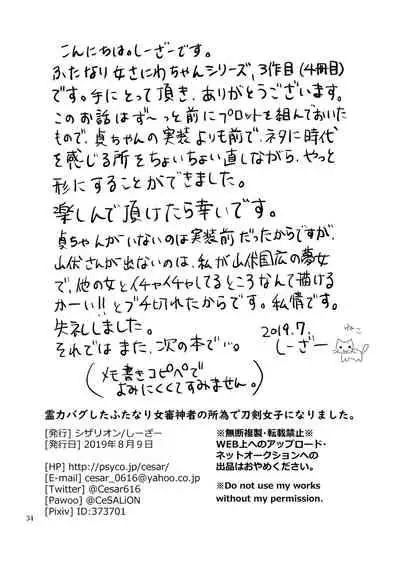 こんにちは。しーざーです。
ふたなり女さにわちゃんシリーズ、3作目(4冊目)
です。手にとって頂き、ありがとうございます。
このお話はず〜っと前にプロットを組んでおいた
もので、貞ちゃんの実装よりも前で、ネタに時代
を感じる所をちょいちょい直しながら、やっと
形にすることができました。
楽しんで頂けたら幸いです。
貞ちゃんがいないのは実装前だったからですが、
山伏さんが出ないのは、私が山伏国広の夢女
で、他の女とイチャイチャしてるところなんて描ける
かーい!!とブチ切れたからです。私情です。
失礼しました。
それでは また、次の本で…。
2019.7.
しーざー
ねこ
(メモ書きコピペで
よみにくくてすみません。)
霊力バグしたふたなり女審神者の所為で刀剣女子になりました。
[発行] シザリオン/しーざー
[発行日] 2019年8月9日
[HP] http://psyco.jp/cesar/
[E-mail] cesar_0616@yahoo.co.jp
[Twitter] @Cesar616
[Pawoo] @CeSALiON
[Pixiv] ID:373701
※無断複製・転載禁止※
WEB上へのアップロード・
ネットオークションへの
出品はおやめください。
※Do not use my works
without my permission.
34